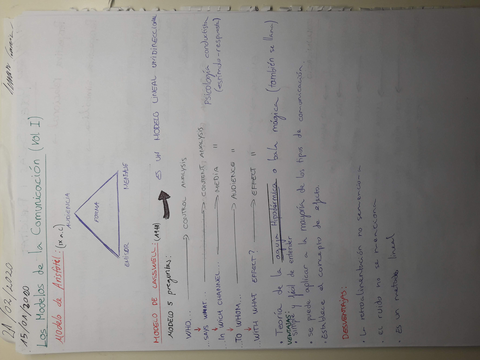 21/02/2020
15/01/2020
Los Modelos de la Comunicación (Vol. I)
Modelo de Aristóteles: (IV a.C)
AUDIENCIA
FORMA
EMISOR
MENSAJE
MODELO DE LASSWELL: (1948) → ES UN MODELO LINEAL UNIDIRECCIONAL
MODELO 5 preguntas: Psicología conductista
(estímulo-respuesta)
WHO... → CONTROL ANALYSIS
SAYS WHAT... → CONTENT ANALYSIS
IN WICH CHANNEL... → MEDIA "
TO WHOM... → AUDIENCE "
WITH WHAT EFFECT? → EFFECT "
• Teoría de la aguja hipodérmica o bala mágica (también se llama)
VENTAJAS:
• Simple y fácil de entender
• Se puede aplicar a la mayoría de los tipos de comunicación
• Establece el concepto de efecto.
DESVENTAJ.
• La retroalimentación no se menciona
• El ruido no se menciona
• Es un modelo lineal